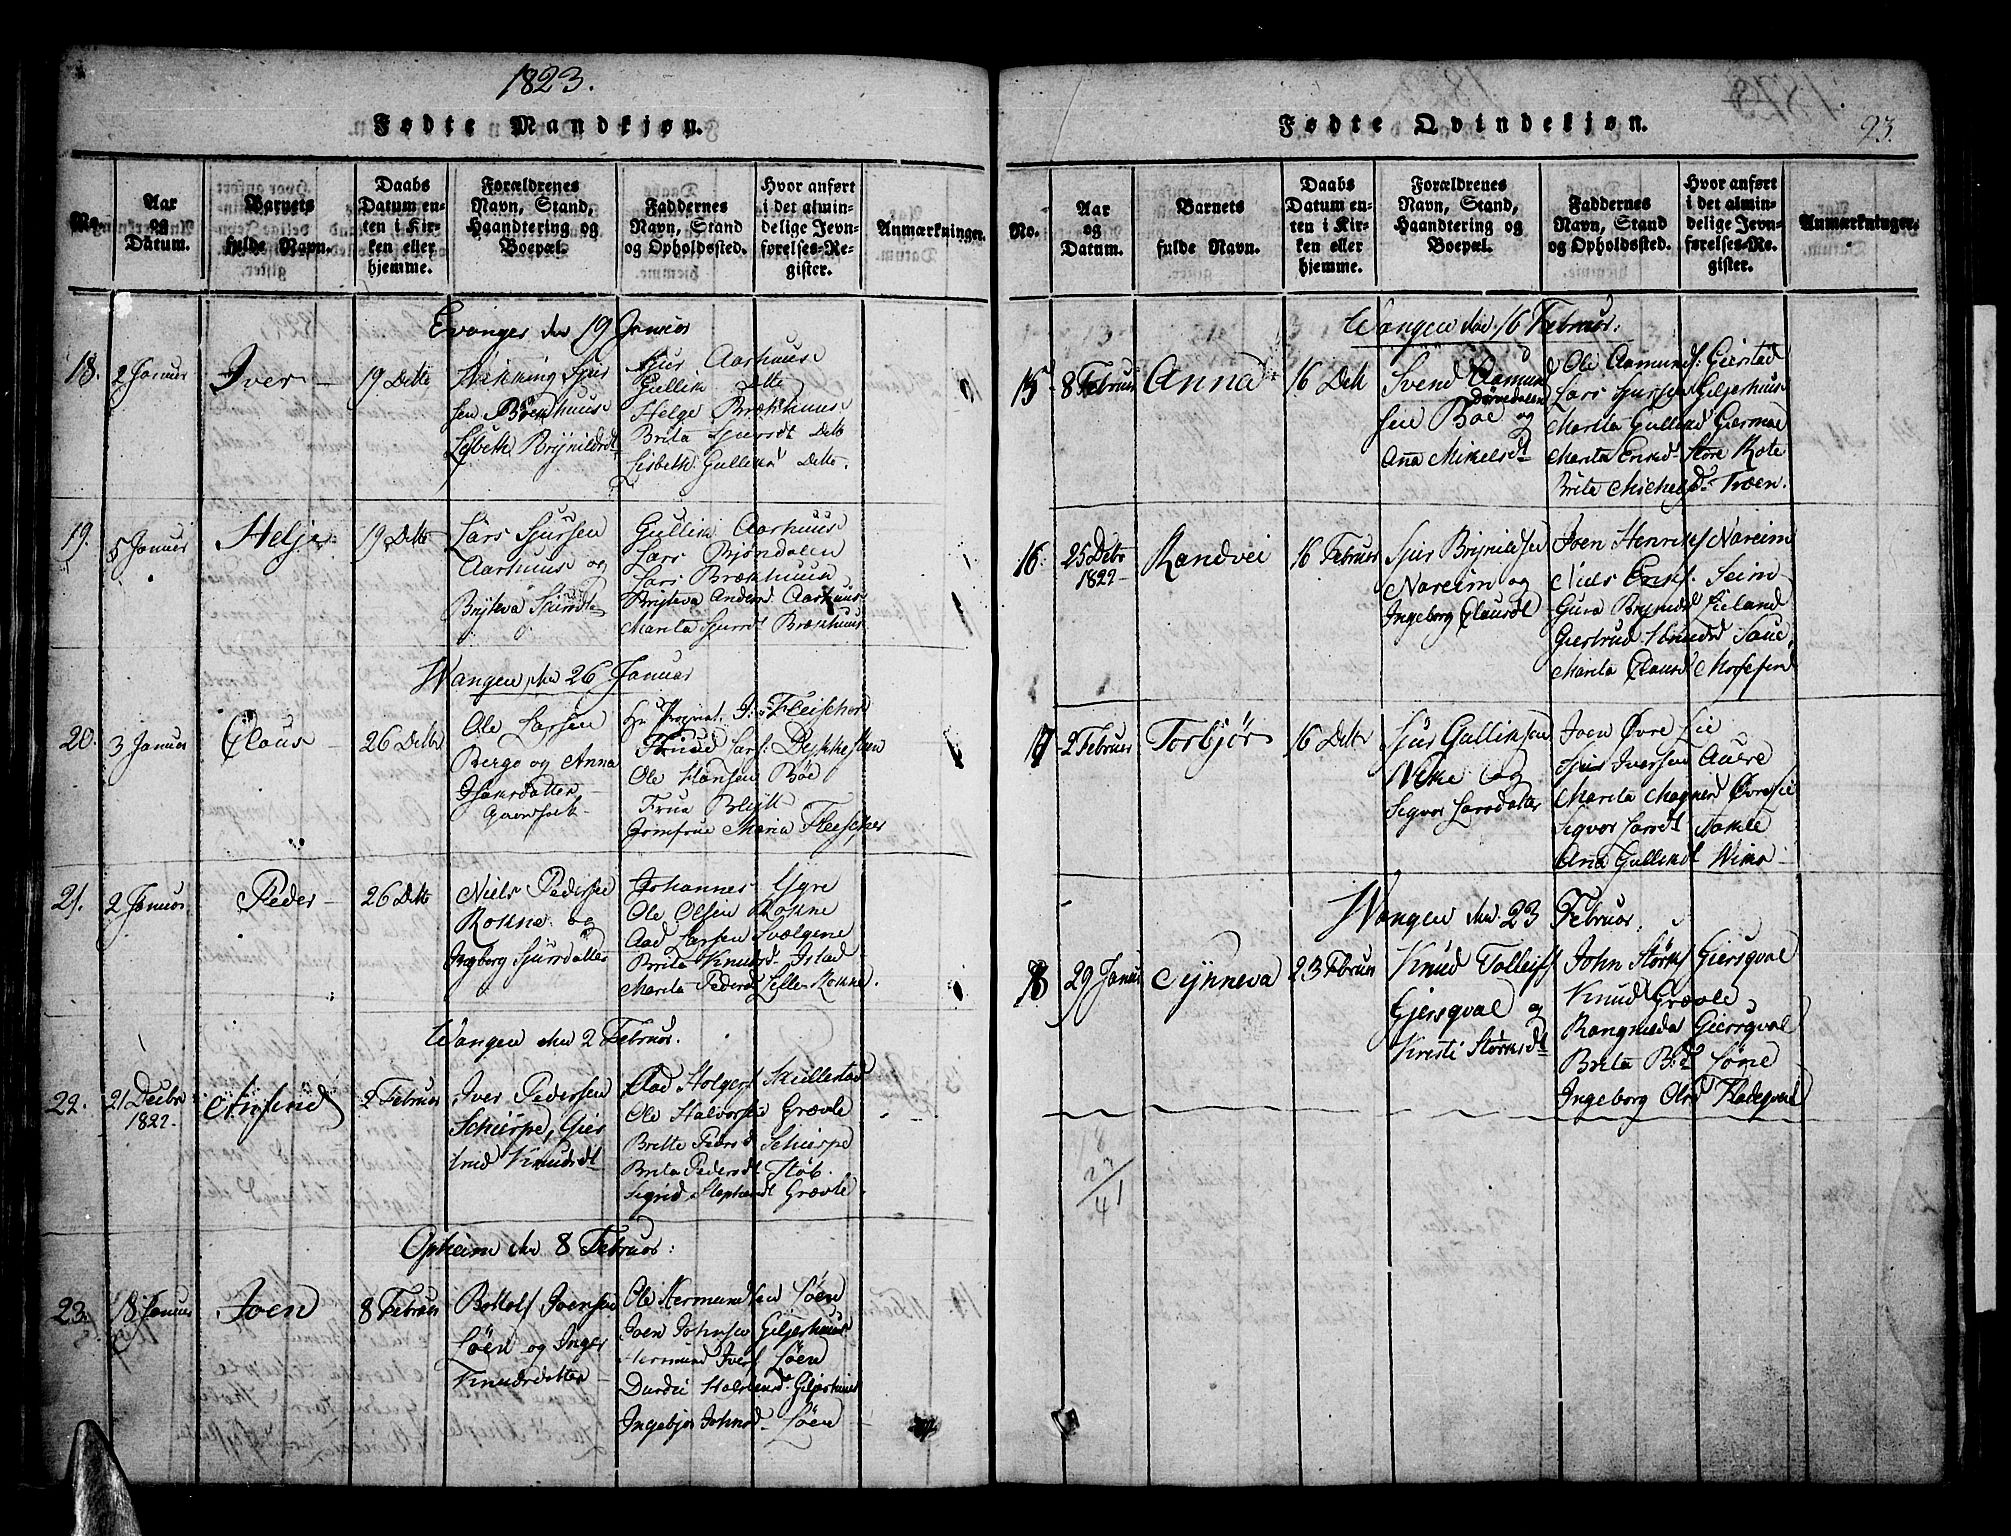 1823.
Fødte Mandkjøn.
No.
Aar og Datum.
Barnets fulde Navn.
Daabs Datum enten i Kirken eller hjemme.
Forældrenes Navn, Stand, Haandtering og Boepæl.
Faddernes Navn, Stand og Opholdssted.
Hvor anført i det almindelige Jevnførelses-Register.
Anmærkninger.
Evanger den 19 Januar
18.
2 Januar
Iver
19 Dette
Sjur
sen
huuse
Lisbeth Brynildsdt
Sjur Aarhuus
Gullik Dette
Helge Brækhuus
Brita Sjursdt Dette
Lisbeth Gulliksd Dette.
19.
5 Januar
Helje
19 Dette
Lars Sjursen
Aarhuus og
Bryteva Sjursdt
Gullik Aarhuus
Lars Bjøndalen
Lars Brækhuus
Bryteva Andersd Aarhuus
Marita Sjursdt Brækhuus
Wangen den 26 Januar
20.
3 Januar
Claus
26 Dette
Ole Larsen
Bergo og Anna
Hansdatter
Hr Prognst. Fleischer
Lars: Dykkesteen
Ole Hansen Bøe
Frue Blytt
Jomfrue Maria Fleischer
21.
2 Januar
Peder
26 Dette
Niels Pedersen
Rokne og
Ingeborg Sjursdatter
Johannes Ygre
Ole Olsen Rokne
Aad Larsen Svælgene
Brita Knudsd Istad
Marita Pedersd Lille Rokne.
Wangen den 2 Februar.
22.
21 Decbr 1822
2 Februar
Iver Pedersen
Schierpe, Gier
trud Knudsdt
Aad Holgers Skiellestad
Ole Halvorsen Grævle
Britte Pedersd Schierpe
Brita Pedersdt Støb.
Sigrid Stephensdt Grævle
Opheim den 8 Februar:
23.
18 Januar
Joen
8 Februar
Bottolf Joensen
Løen og Inger
Knudsdatter
Ole Hermundsen Løen
Joen Johnsen Giljerhuus
Hermund Ivers Løen
Durdei Giljerhuus
Ingebjør Johnsd Løen
23
Fødte Qvindekjøn.
No.
Aar og Datum.
Barnets fulde Navn.
Daabs Datum enten i Kirken eller hjemme.
Forældrenes Navn, Stand, Haandtering og Boepæl.
Faddernes Navn, Stand og Opholdssted.
Hvor anført i det almindelige Jevnførelses-Register.
Anmærkninger.
Wangen den 16 Februar.
15
8 Februar
Anna
16 Dett
Svend Aamund
sen Bøe og
Anna Mikelsdt
Ole Aamunds. Gierstad
Lars Sjursen Giljerhuus
Marita Gulliksd Giermoe
Marita Eriksd Store Rote
Brita Michelsd Troen.
16.
25 Decbr 1822
Randvei
16 Februar
Sjur Brynildsen
Nareim og
Ingeborg Clausdt
Joen Henriks Nareim
Niels Eriks. Seim
Gura Brynilds Lieland
Giertrud Saue
Marita Clausd
17
2 Februar
Torbjør
16 Dette
Sjur Gulliksen
og
Sigvor Larsdatter
Joen Øvre Lie
Sjur Iversen Auere
Marita Magned Øvre Lie
Sigvor Larsdt
Anna Gulliksdt
Wangen den 23 Februar.
18
29 Januar
Synneva
23 Februar
Knud Tolleifs
Giersqval og
Kristi Størksdt
John Størks Giersqval
Knud Grævle
Giersqval
Brita
Ingeborg Olsd
18
23
41